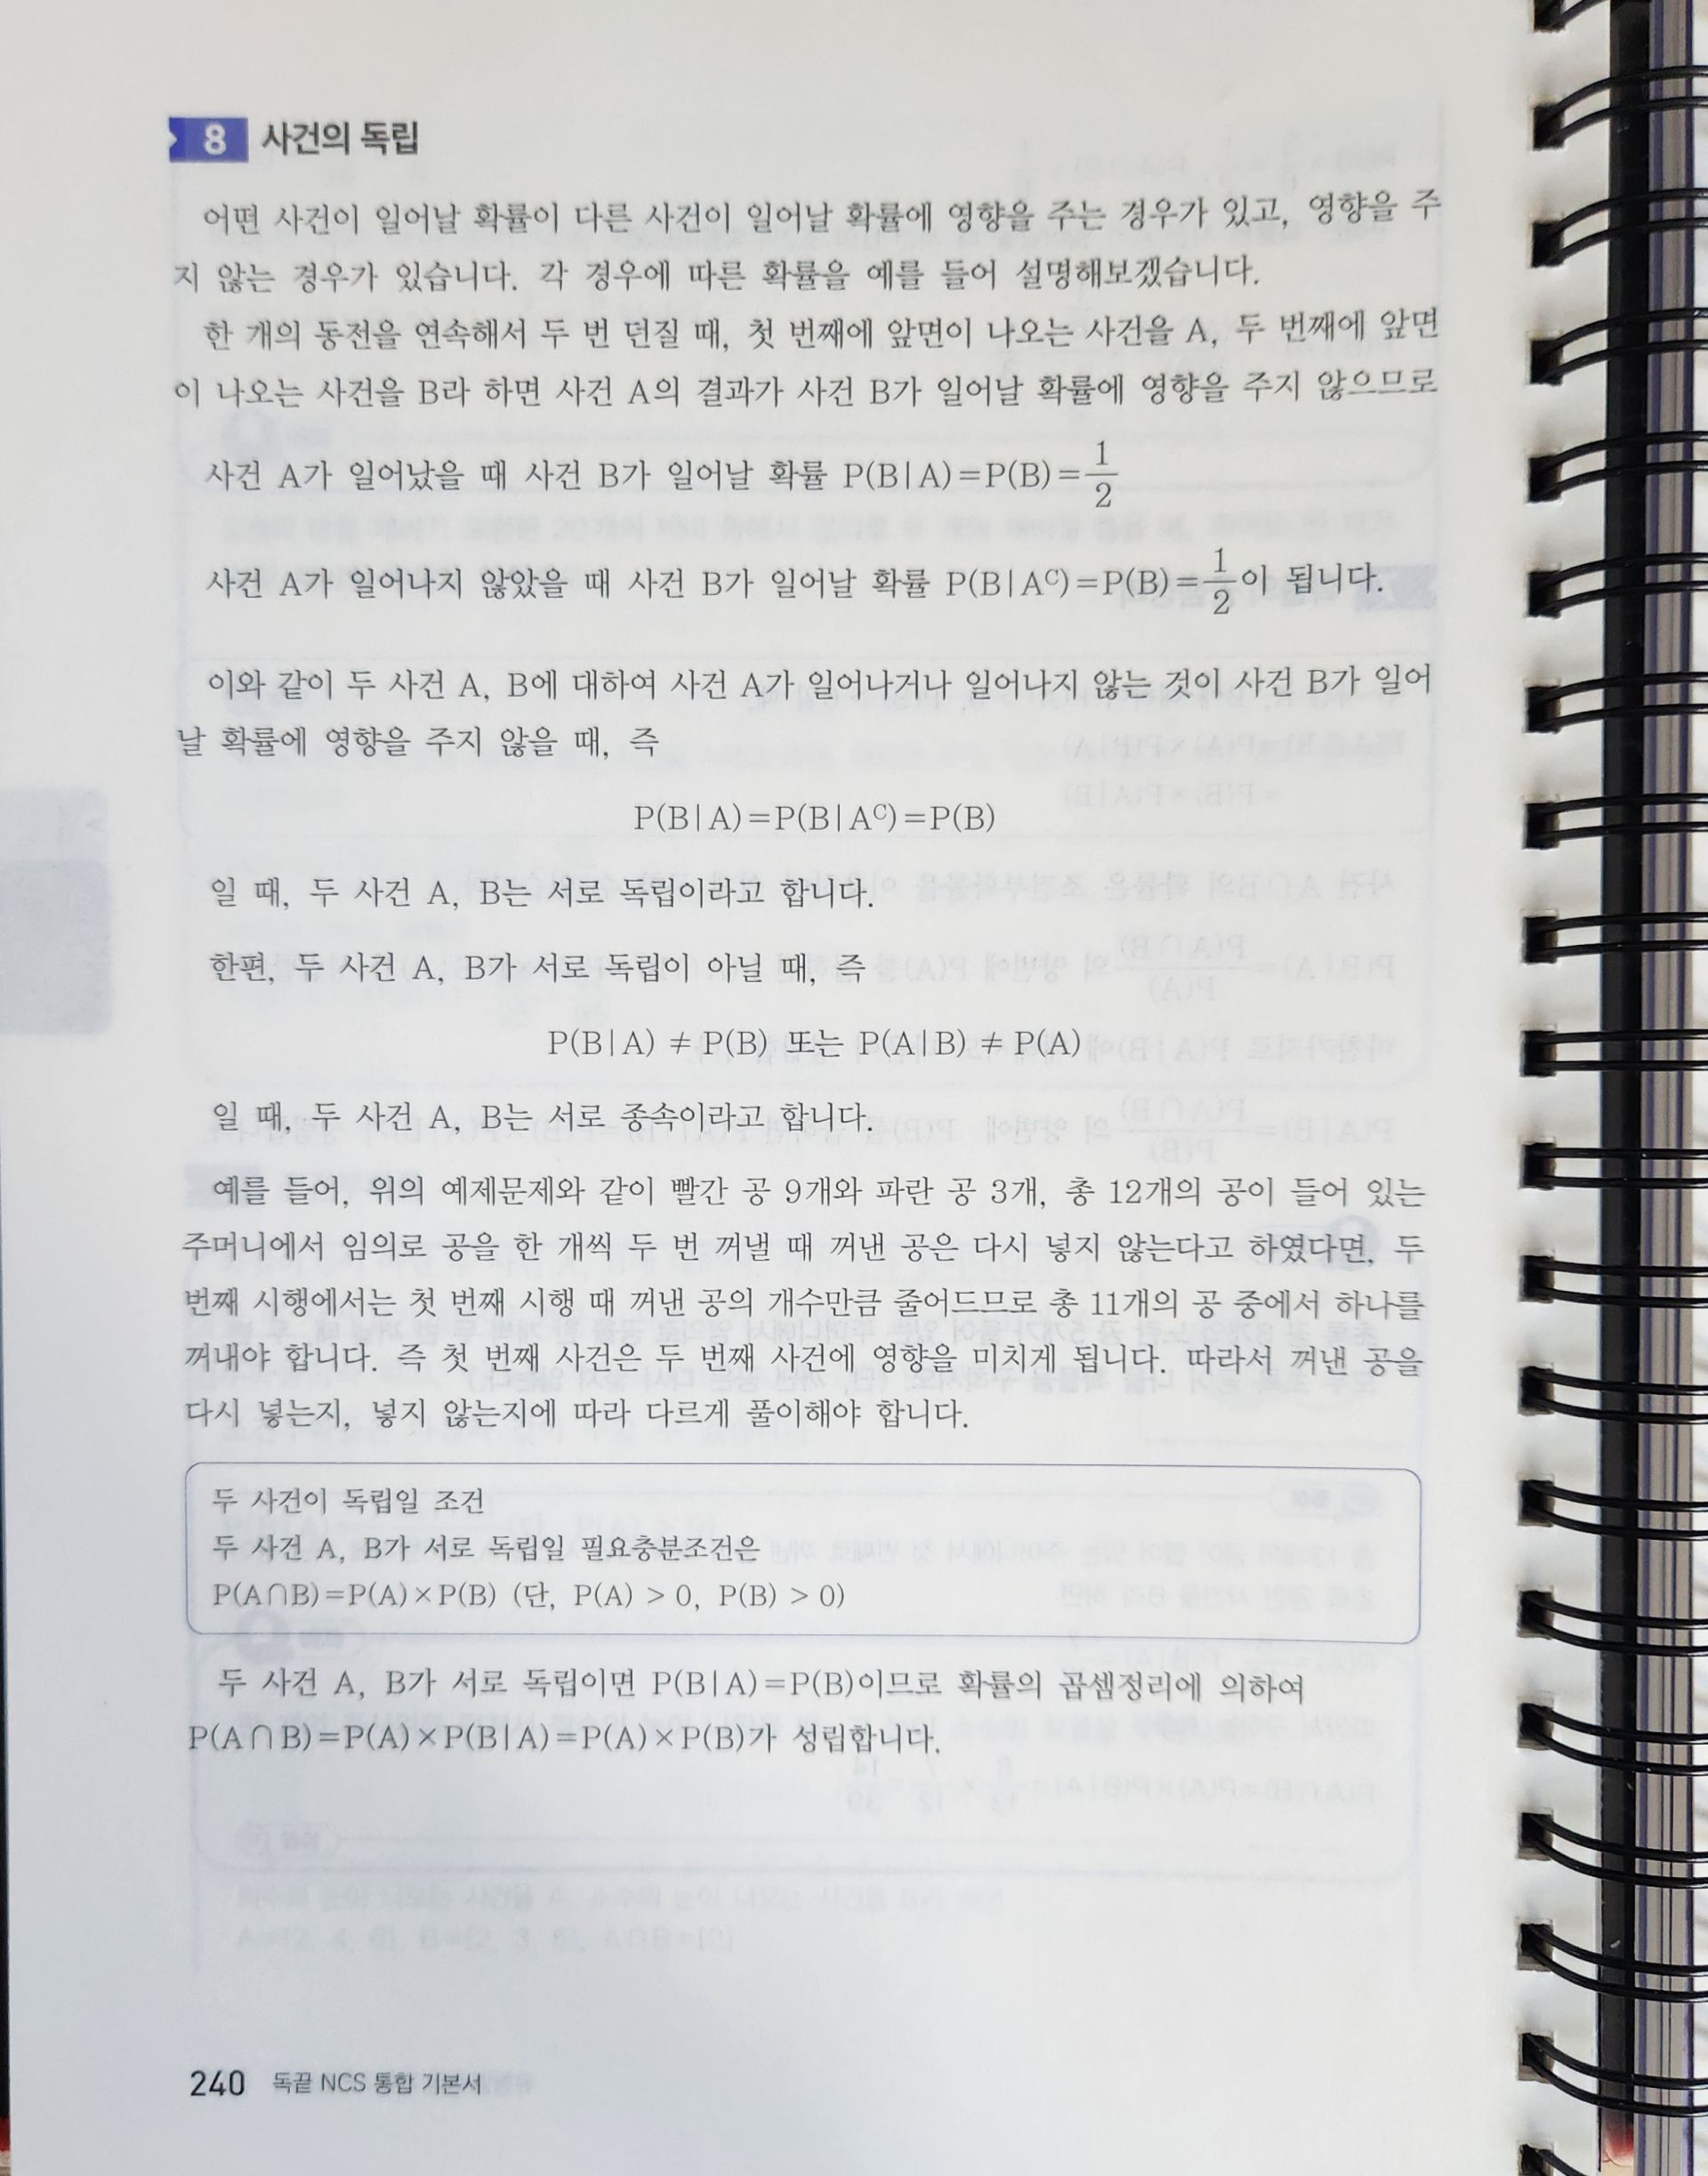 8 사건의 독립
어떤 사건이 일어날 확률이 다른 사건이 일어날 확률에 영향을 주는 경우가 있고, 영향을 주
지 않는 경우가 있습니다. 각 경우에 따른 확률을 예를 들어 설명해보겠습니다.
한 개의 동전을 연속해서 두 번 던질 때, 첫 번째에 앞면이 나오는 사건을 A, 두 번째에 앞면
이 나오는 사건을 B라 하면 사건 A의 결과가 사건 B가 일어날 확률에 영향을 주지 않으므로
사건 A가 일어났을 때 사건 B가 일어날 확률 P(B|A)=P(B)=1/2
사건 A가 일어나지 않았을 때 사건 B가 일어날 확률 P(B|Aᶜ)=P(B)=1/2이 됩니다.
이와 같이 두 사건 A, B에 대하여 사건 A가 일어나거나 일어나지 않는 것이 사건 B가 일어
날 확률에 영향을 주지 않을 때, 즉
P(B|A)=P(B|Aᶜ)=P(B)
일 때, 두 사건 A, B는 서로 독립이라고 합니다.
한편, 두 사건 A, B가 서로 독립이 아닐 때, 즉
P(B|A) ≠ P(B) 또는 P(A|B) ≠ P(A)
일 때, 두 사건 A, B는 서로 종속이라고 합니다.
예를 들어, 위의 예제문제와 같이 빨간 공 9개와 파란 공 3개, 총 12개의 공이 들어 있는
주머니에서 임의로 공을 한 개씩 두 번 꺼낼 때 꺼낸 공은 다시 넣지 않는다고 하였다면, 두
번째 시행에서는 첫 번째 시행 때 꺼낸 공의 개수만큼 줄어드므로 총 11개의 공 중에서 하나를
꺼내야 합니다. 즉 첫 번째 사건은 두 번째 사건에 영향을 미치게 됩니다. 따라서 꺼낸 공을
다시 넣는지, 넣지 않는지에 따라 다르게 풀이해야 합니다.
두 사건이 독립일 조건
두 사건 A, B가 서로 독립일 필요충분조건은
P(A∩B)=P(A)×P(B) (단, P(A) > 0, P(B) > 0)
두 사건 A, B가 서로 독립이면 P(B|A)=P(B)이므로 확률의 곱셈정리에 의하여
P(A∩B)=P(A)×P(B|A)=P(A)×P(B)가 성립합니다.
240 독끝 NCS 통합 기본서